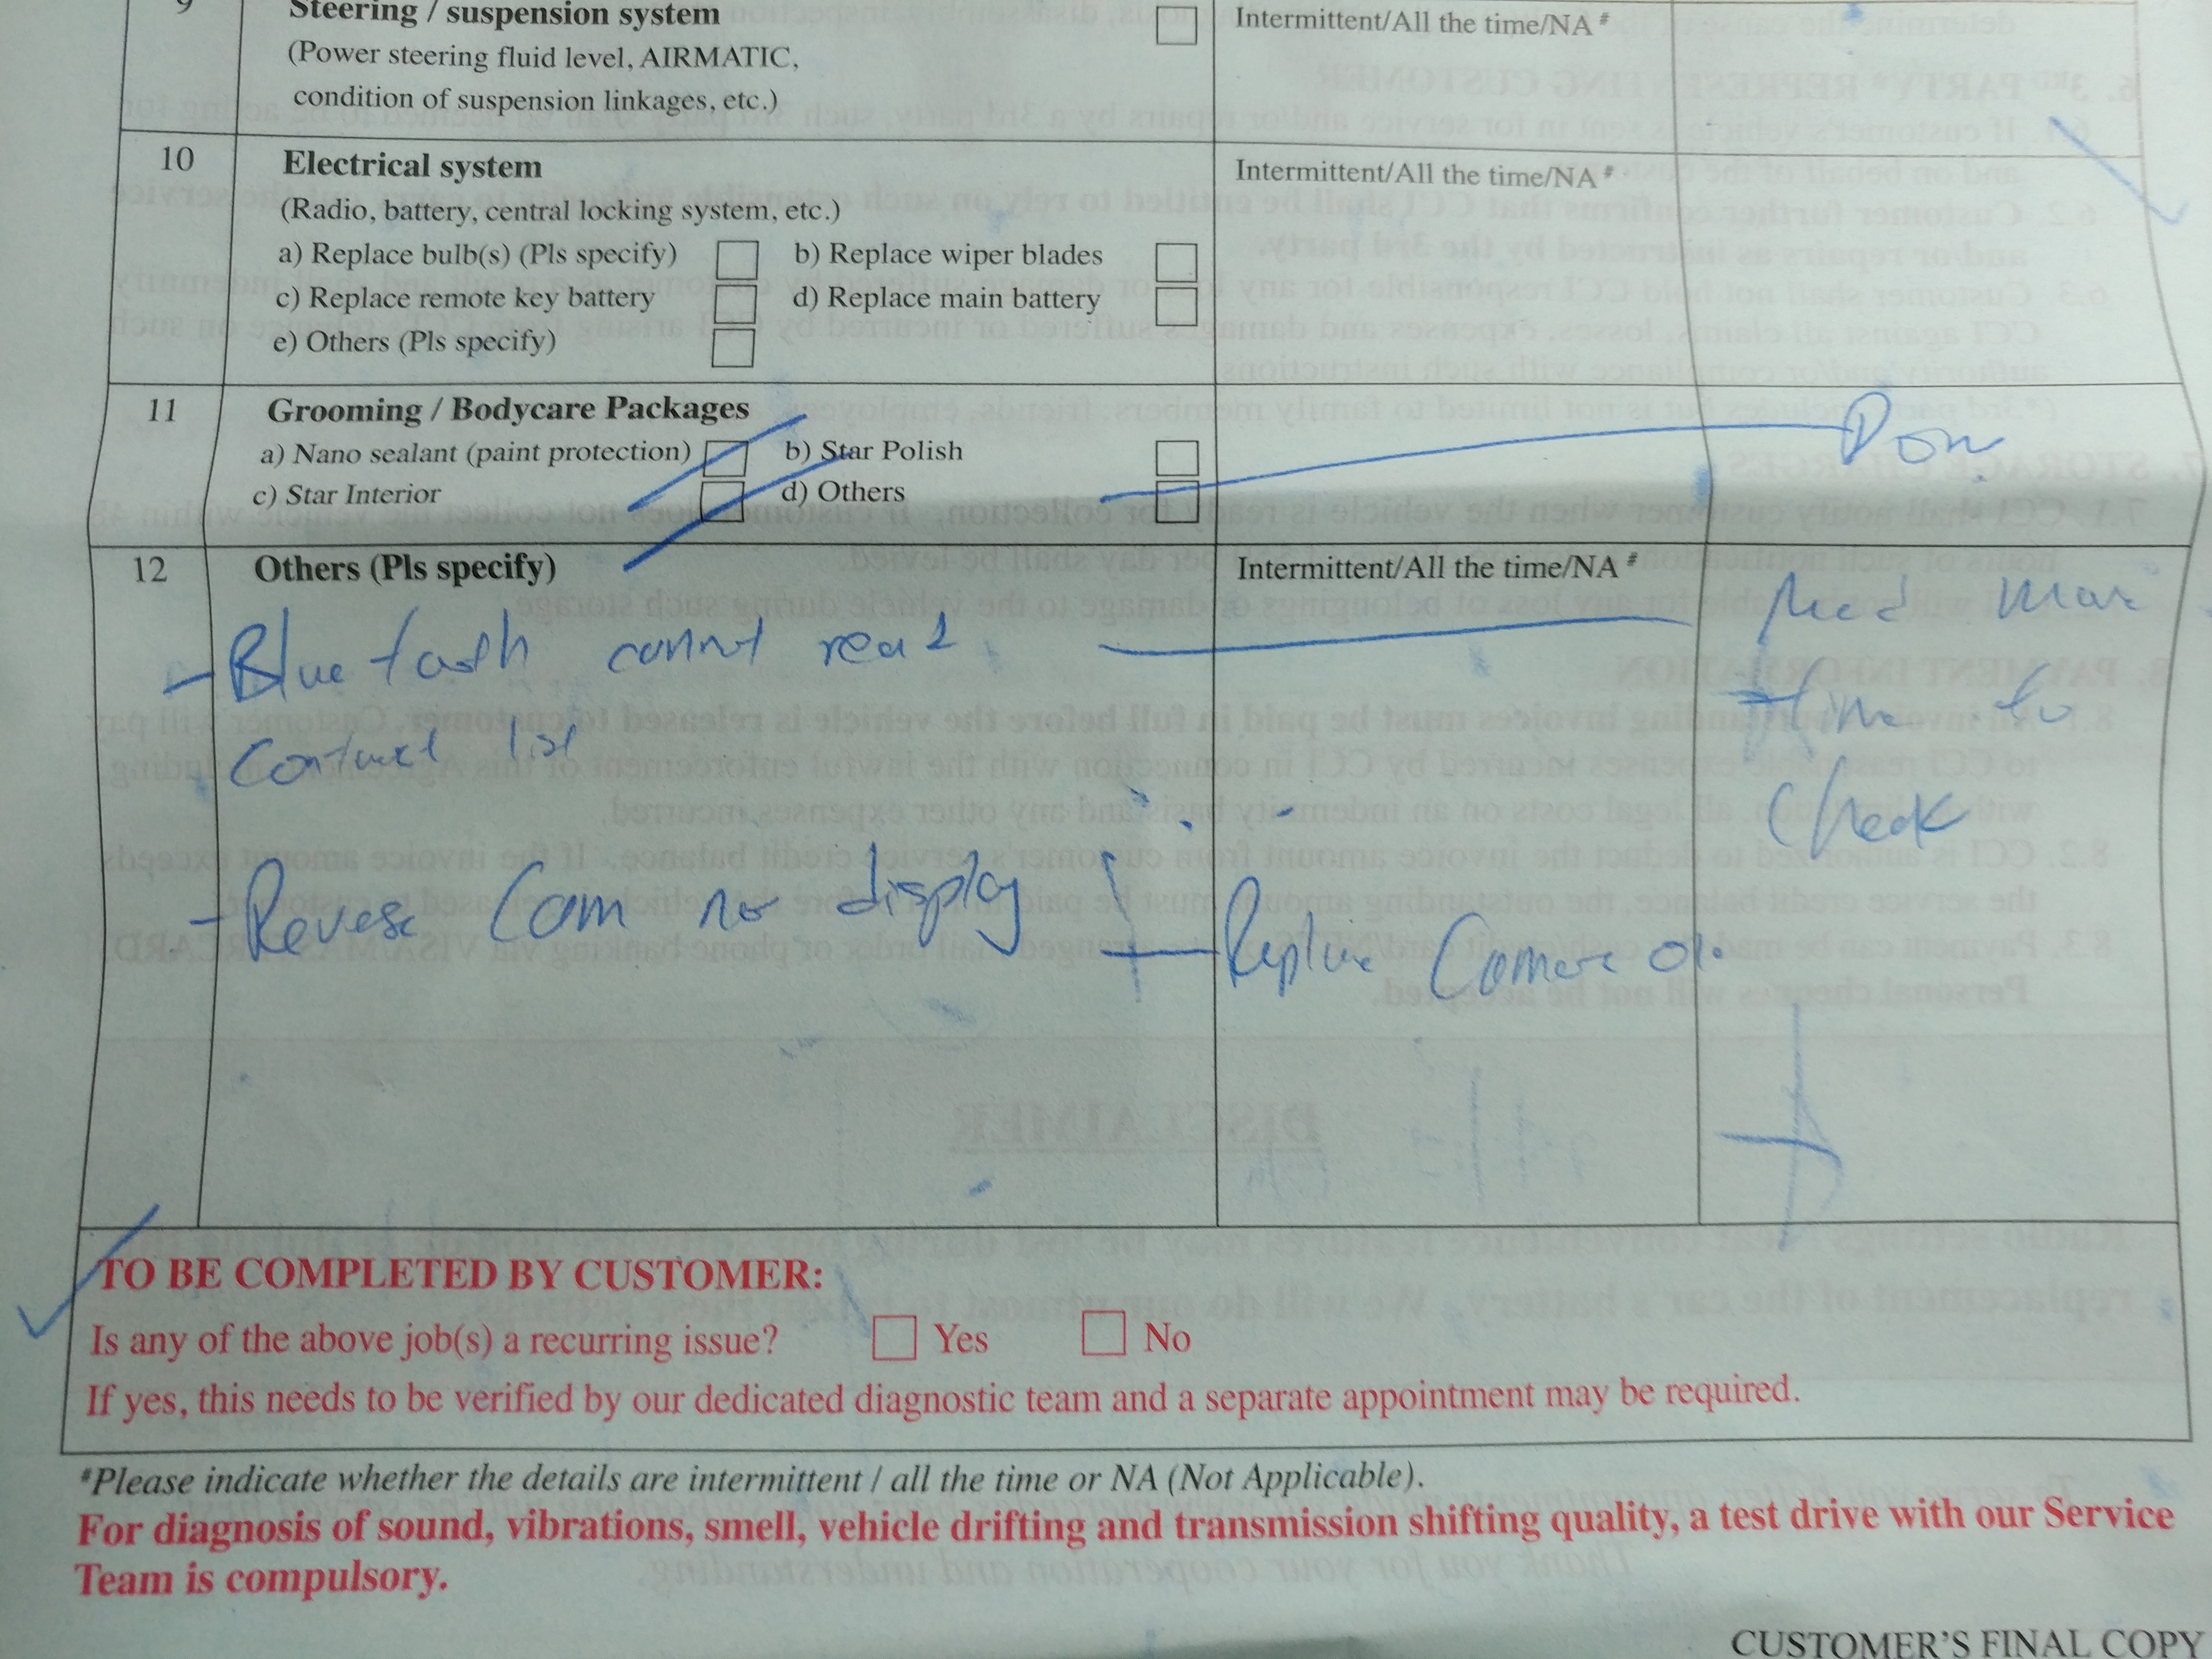 9 Steering / suspension system Intermittent/All the time/NA #
(Power steering fluid level, AIRMATIC,
condition of suspension linkages, etc.)
10 Electrical system Intermittent/All the time/NA #
(Radio, battery, central locking system, etc.)
a) Replace bulb(s) (Pls specify) b) Replace wiper blades
c) Replace remote key battery d) Replace main battery
e) Others (Pls specify)
11 Grooming / Bodycare Packages
a) Nano sealant (paint protection) b) Star Polish
c) Star Interior d) Others
12 Others (Pls specify) Intermittent/All the time/NA #
- Blue cannot read
Contact list
Need
time to
Check
- Reverse Cam no display
Replace Camera
TO BE COMPLETED BY CUSTOMER:
Is any of the above job(s) a recurring issue? Yes No
If yes, this needs to be verified by our dedicated diagnostic team and a separate appointment may be required.
#Please indicate whether the details are intermittent / all the time or NA (Not Applicable).
For diagnosis of sound, vibrations, smell, vehicle drifting and transmission shifting quality, a test drive with our Service
Team is compulsory.
CUSTOMER'S FINAL COPY